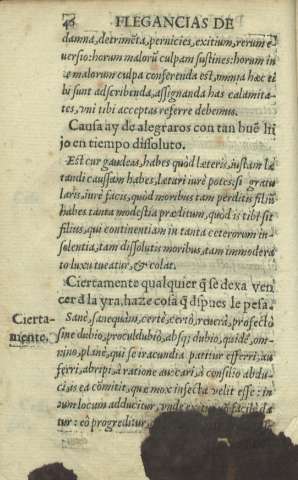 48 ELEGANCIAS DE
damna, detrimēta, pernicies, exitium, rerum e
uersio: horum malorū culpam sustines: horum in
te malorum culpa conferenda est, omnia hæc ti
bi sunt adscribenda, assignanda has calamita-
tes, vni tibi acceptas referre debemus.
Causa ay de alegraros con tan buē hi
jo en tiempo dissoluto.
Est cur gaudeas, habes quòd læteris, iustam læ
tandi caussam habes, lætari iurè potes: si gratu
laris, iurè facis, quòd moribus tam perditis filiū
habes tanta modestia præditum, quòd is tibi sit
filius, qui continentiam in tanta ceterorum in-
solentia, tam dissolutis moribus, tam immodera
to luxu tueatur, & colat.
Ciertamente qualquier q̄ se dexa ven
cer d̄ la yra, haze cosa q̄ d̄spues le pesa.
Cierta-
mente.
Sanè, sanequàm, certè, certò, reuerà, profectò
sine dubio, proculdubio, absq; dubio, quidē, om-
nino, planè, qui se iracundia patitur efferri, au
ferri, abripi, à ratione auocari, à consilio abdu-
ci, is ea cōmitit, quæ mox infecta velit esse: in
eum locum adducitur, vnde
tur: eò progreditur,